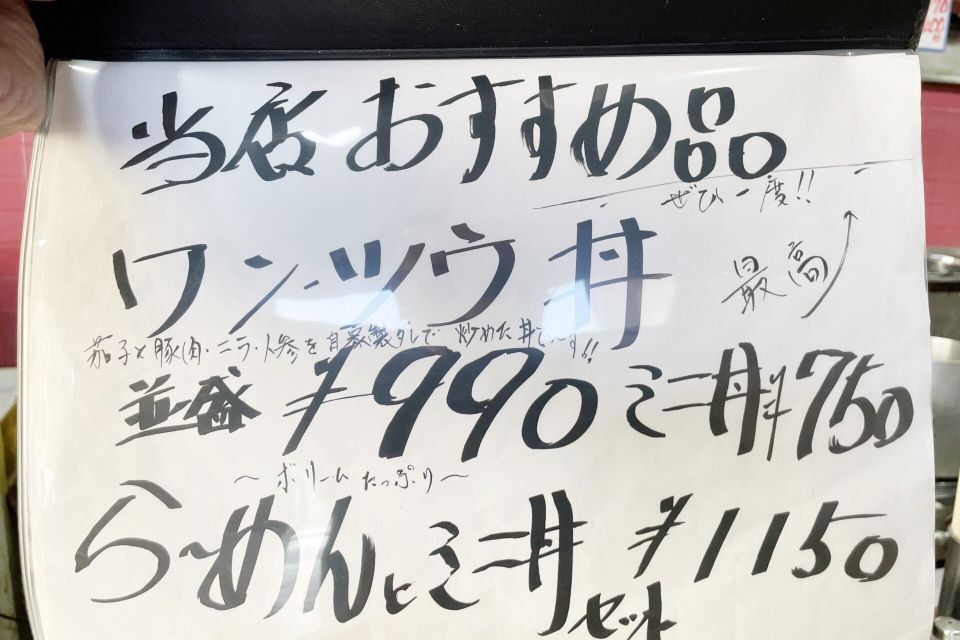 当店おすすめ品
ぜひ一度!!
ワン・ツウ丼
最高
茄子と豚肉・ニラ・人参を自家製タレで炒めた丼で〜す!!
並盛 ¥990 ミニ丼¥750
〜ボリームたっぷり〜
らーめんとミニ丼 ¥1150
セット